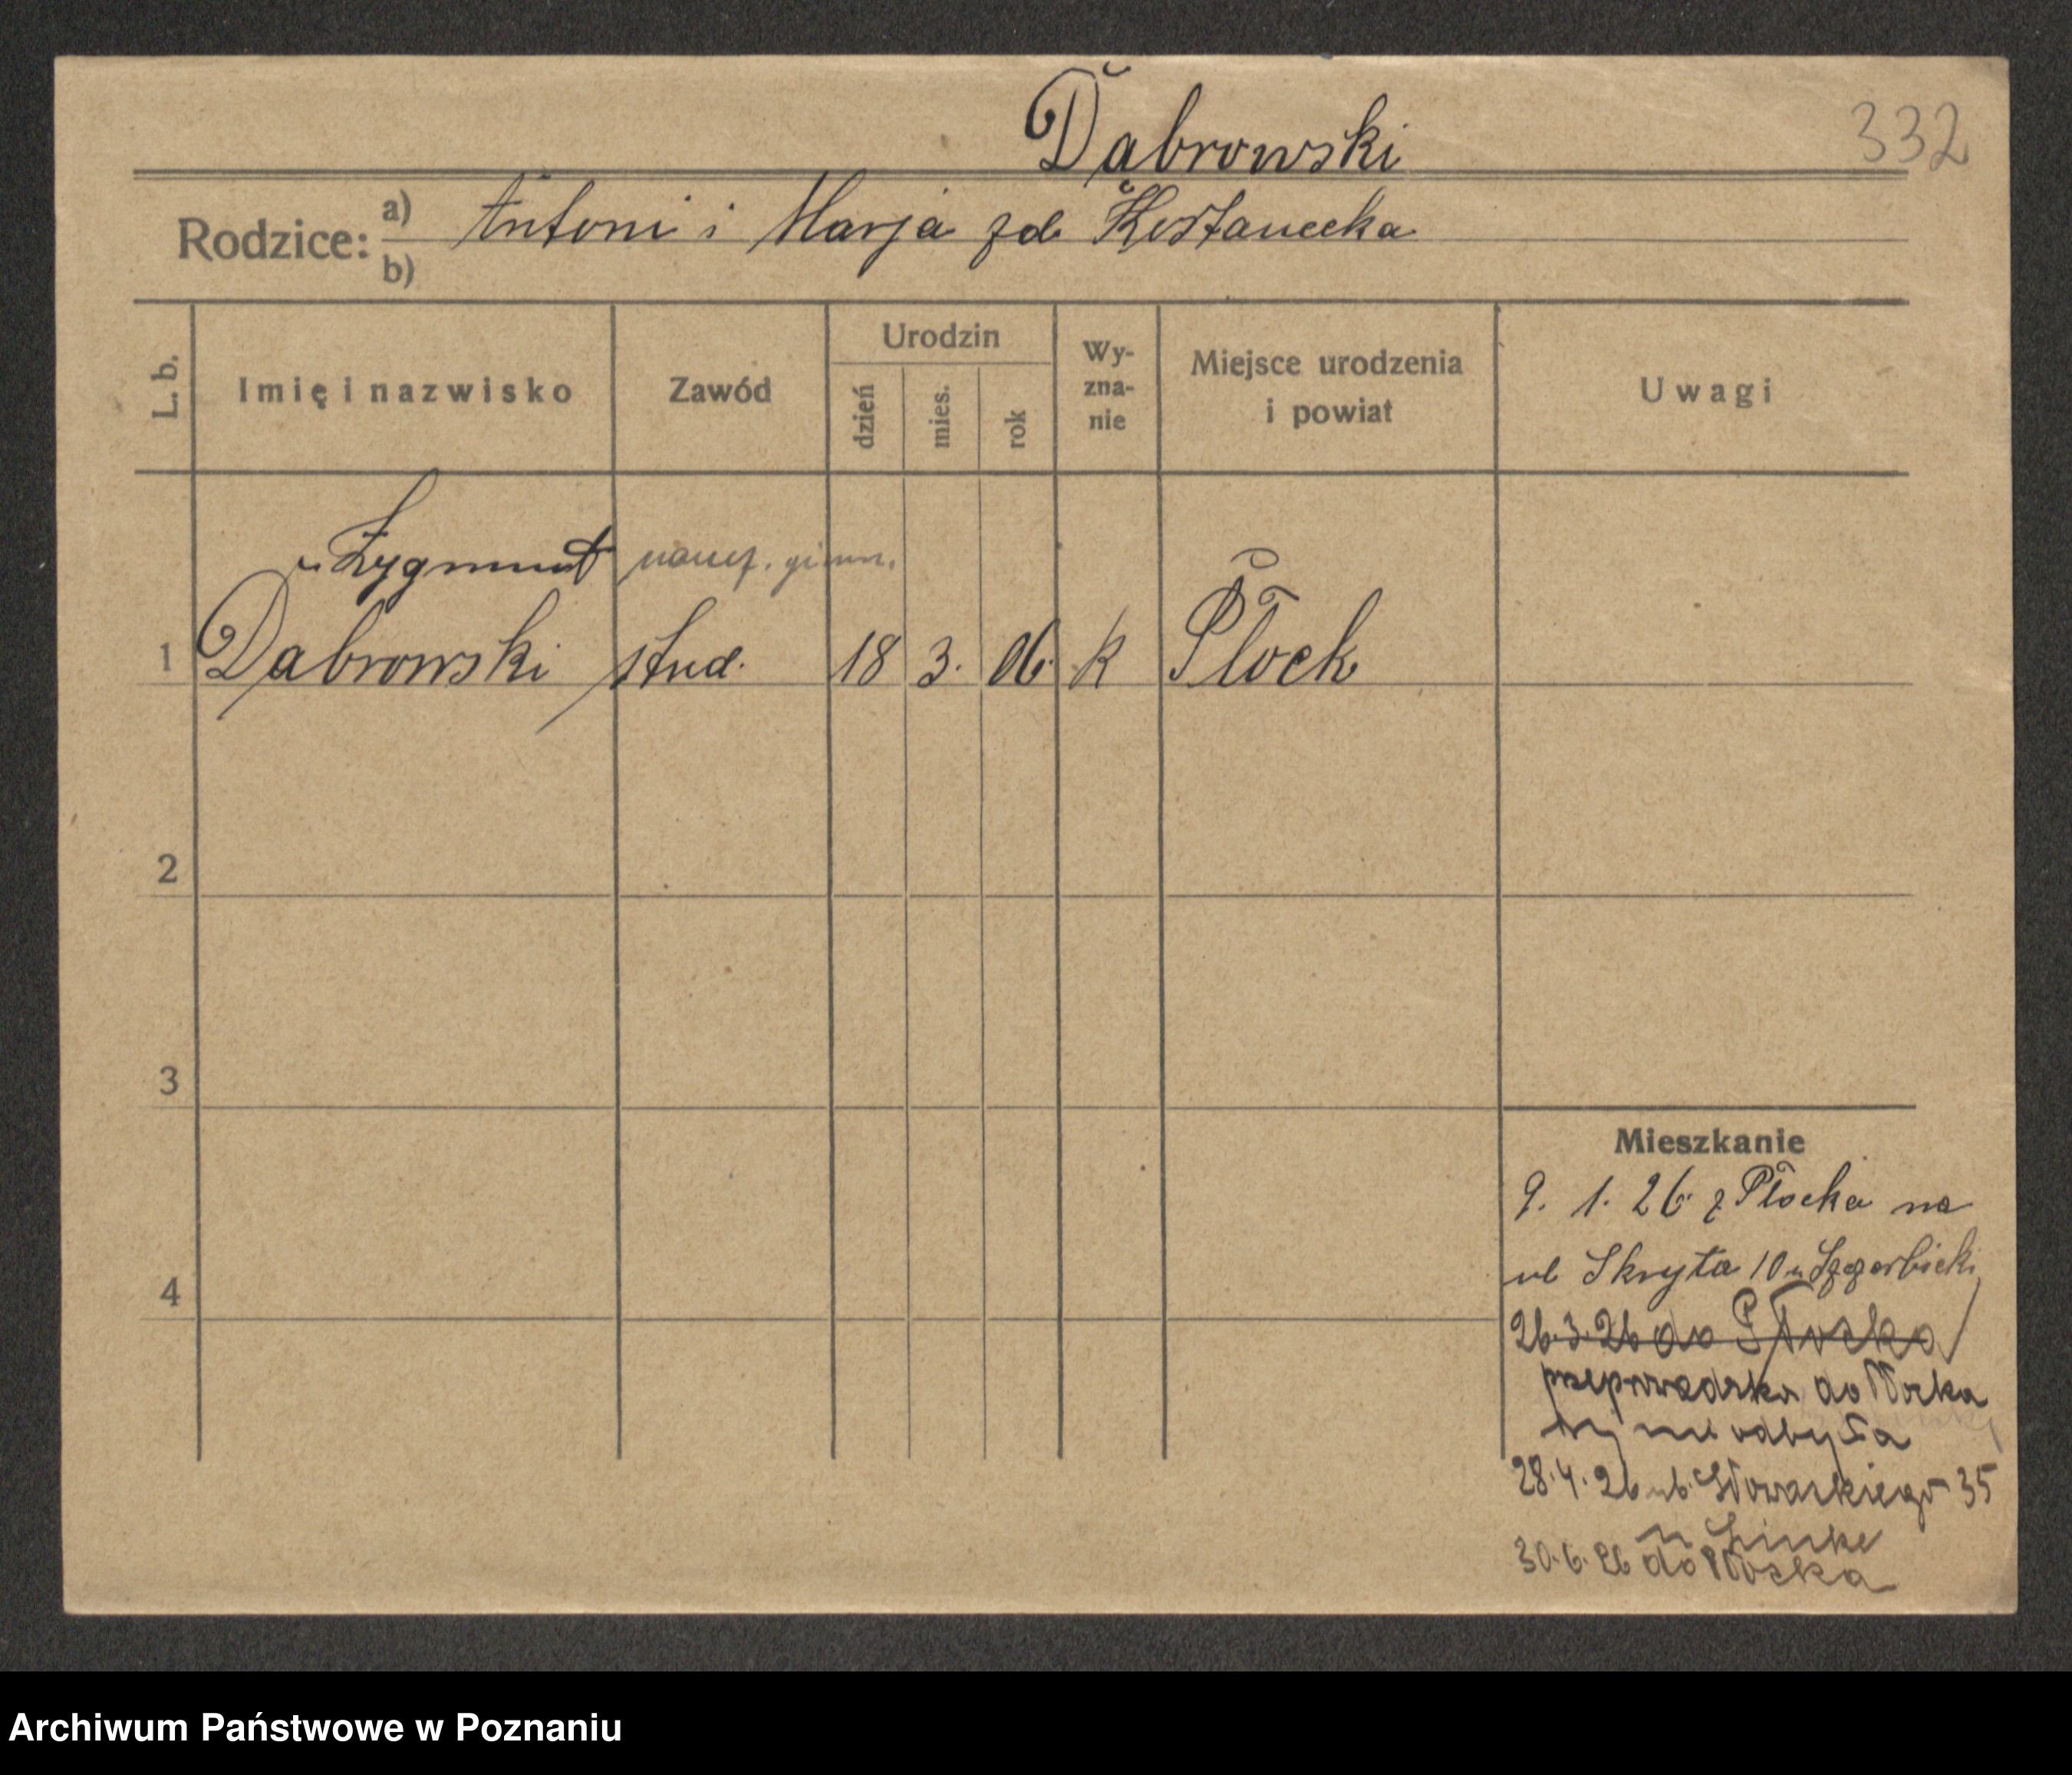 Dąbrowski
332
Rodzice: a) Antoni i Marja zd Kostanecka
b)
L. b. Imię i nazwisko Zawód Urodzin dzień mies. rok Wy-zna-nie Miejsce urodzenia i powiat Uwagi
Zygmunt naucz. gimn.
1 Dąbrowski stud. 18 3. 06. k Płock
2
3
4
Mieszkanie
9. 1. 26. z Płocka na
ul Skryta 10 u Szczerbicki
26.3.26 do Płocka
przeprowadzka do Płocka
nie odbyła
28.4.26 ul. Słowackiego 35
u Linke
30.6.26 do Płocka
Archiwum Państwowe w Poznaniu